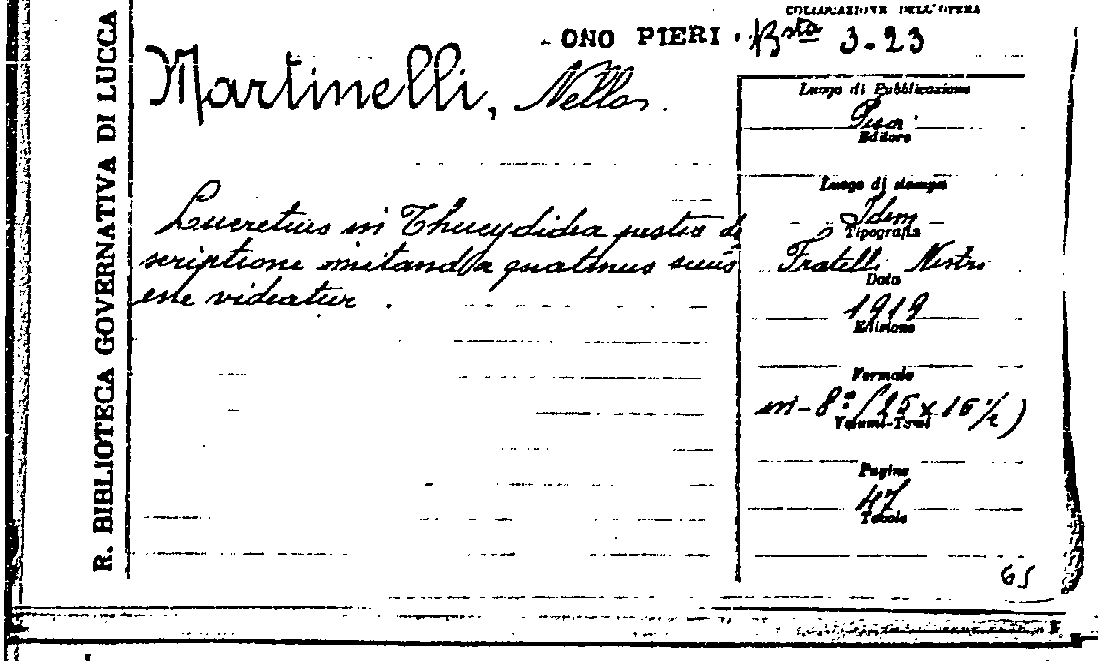 R. BIBLIOTECA GOVERNATIVA DI LUCCA
COLLOCAZIONE DELL'OPERA
ONO PIERI . Bsta 3-23
Martinelli, Nello.
Lucretius in Thucydidea pestis de
scriptione imitanda quatinus suus
esse videatur.
Luogo di Pubblicazione
Pisa
Editore
Luogo di stampa
Idem
Tipografia
Fratelli Nistri
Data
1919
Edizione
Formato
in-8° (25 x 16 1/2)
Volumi-Tomi
Pagine
47
Tavole
65